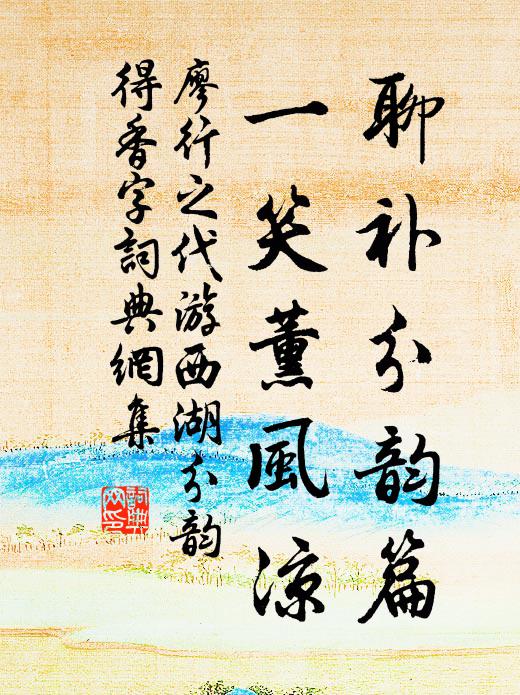 聊补分韵篇
一笑薰風涼
廖行之代游西湖分韵
得香字詞典網集
詞典網印